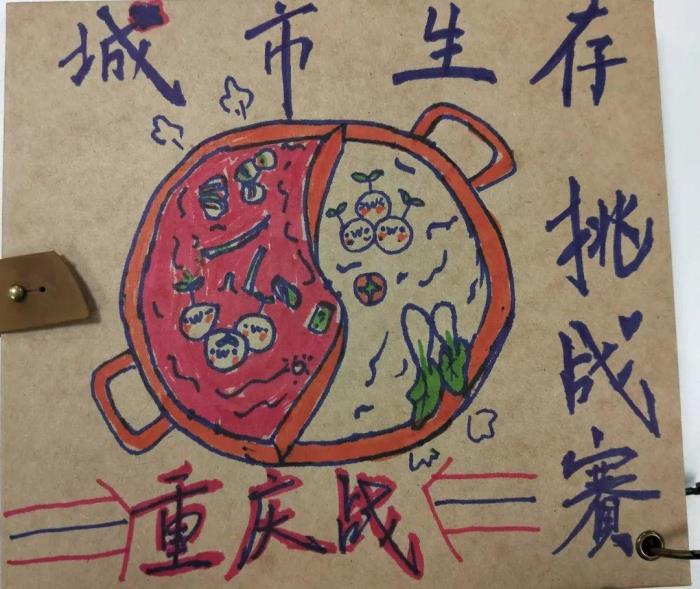 城市生存
挑战賽
重庆战